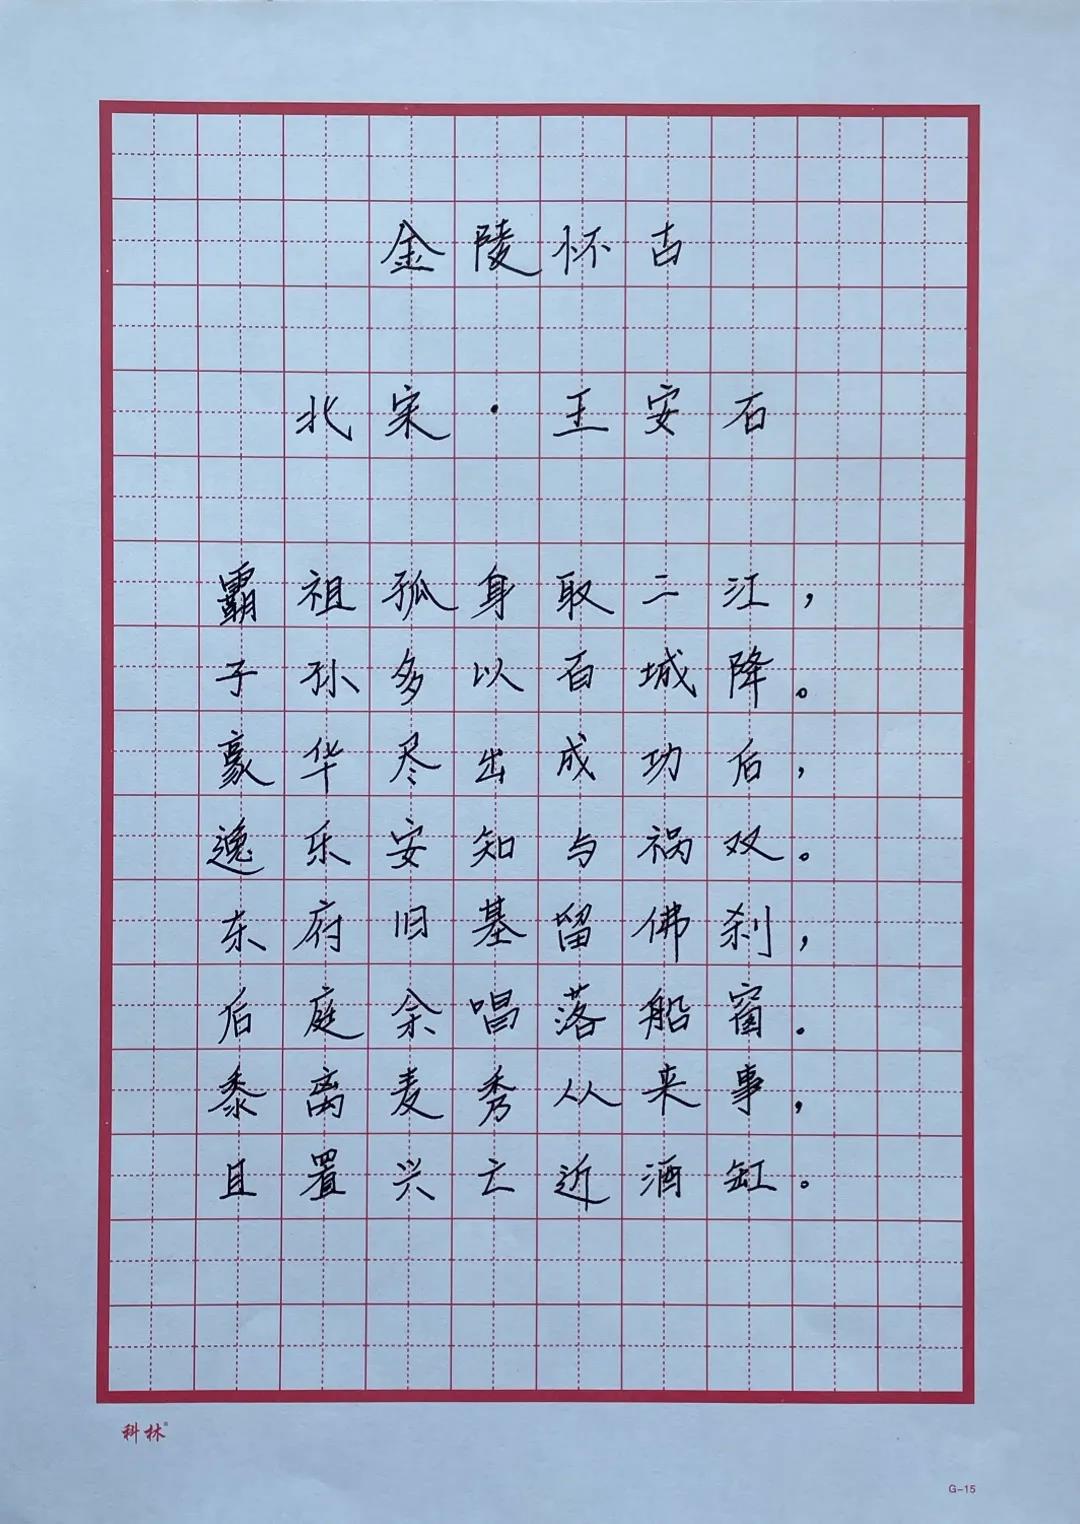 金陵怀古
北宋·王安石
霸祖孤身取二江，
子孙多以百城降。
豪华尽出成功后，
逸乐安知与祸双。
东府旧基留佛刹，
后庭余唱落船窗.
黍离麦秀从来事，
且置兴亡近酒缸。
科林®
G-15